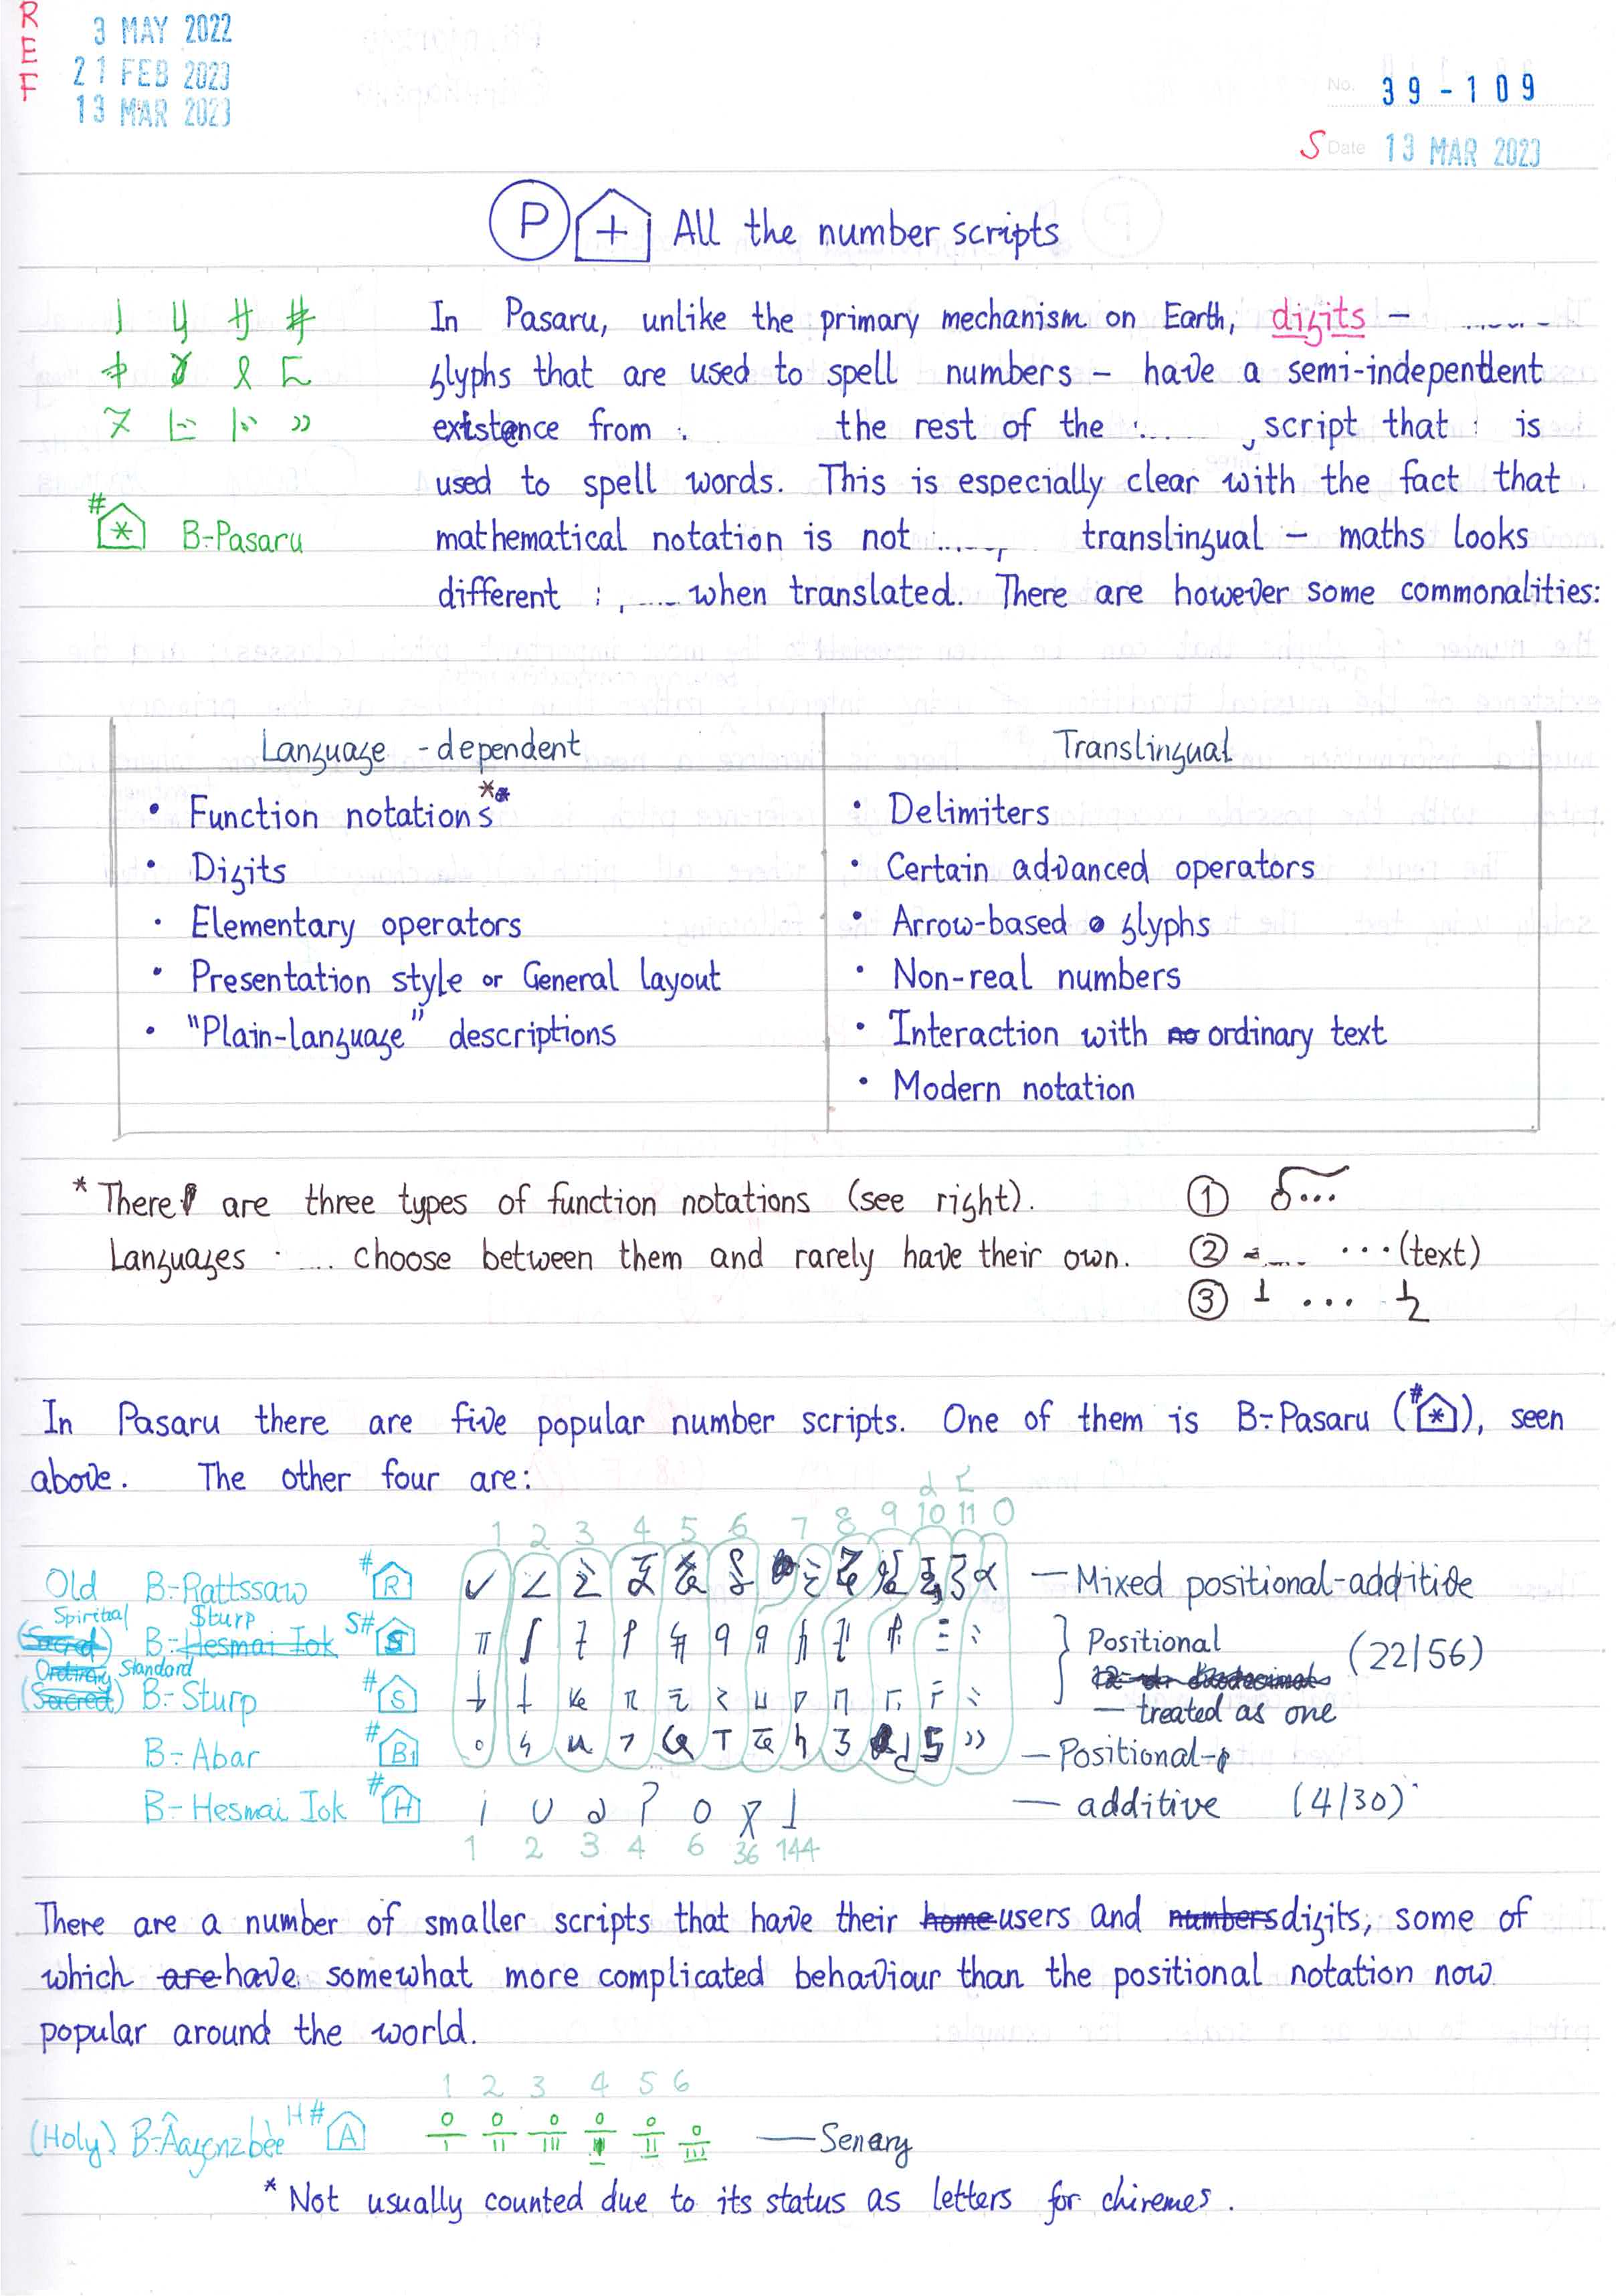 REF
3 MAY 2022
21 FEB 2023
13 MAR 2023
No. 39-109
S Date 13 MAR 2023
P + All the number scripts
In Pasaru, unlike the primary mechanism on Earth, digits –
glyphs that are used to spell numbers – have a semi-independent
existence from the rest of the script that is
used to spell words. This is especially clear with the fact that
# * B-Pasaru
mathematical notation is not translingual – maths looks
different when translated. There are however some commonalities:
Language-dependent
• Function notations*
• Digits
• Elementary operators
• Presentation style or General layout
• "Plain-language" descriptions
Translingual
• Delimiters
• Certain advanced operators
• Arrow-based glyphs
• Non-real numbers
• Interaction with ordinary text
• Modern notation
* There are three types of function notations (see right).
Languages choose between them and rarely have their own.
①
② ...(text)
③
In Pasaru there are five popular number scripts. One of them is B-Pasaru (#*), seen
above. The other four are:
1 2 3 4 5 6 7 8 9 10 11 0
Old B-Rattssaw #R — Mixed positional-additive
Spiritual B- Sturp S#S Positional (22/56)
Standard B-Sturp #S — treated as one
B-Abar #B — Positional-
B-Hesmai Iok #H — additive (4/30)
1 2 3 4 6 36 144
There are a number of smaller scripts that have their users and digits, some of
which have somewhat more complicated behaviour than the positional notation now
popular around the world.
1 2 3 4 5 6
(Holy) H# A — Senary
* Not usually counted due to its status as letters for chiremes.